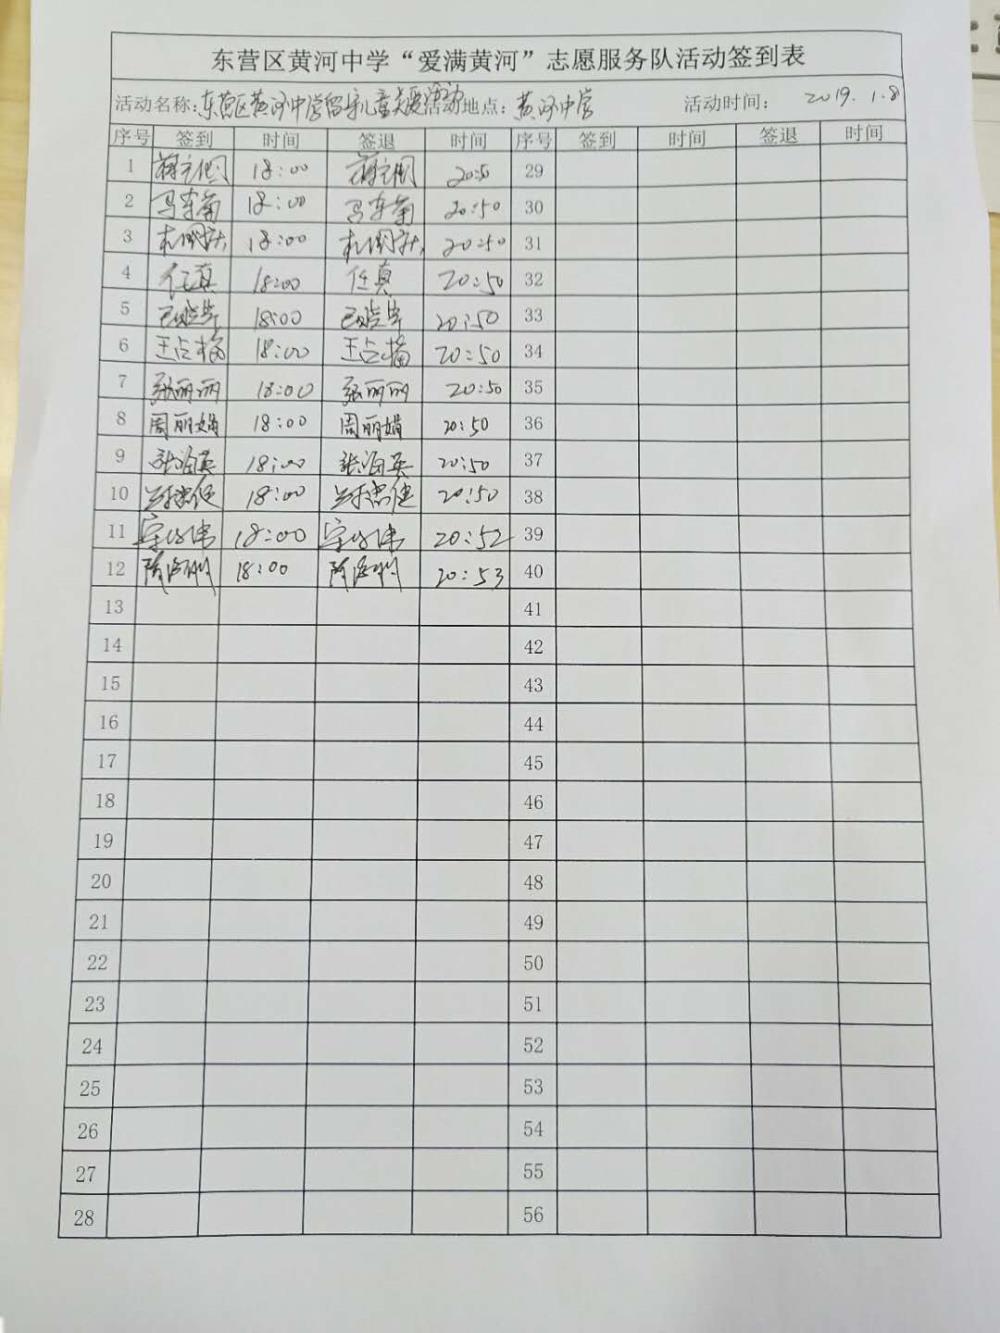 东营区黄河中学“爱满黄河”志愿服务队活动签到表
活动名称:东营区黄河中学留守儿童关爱活动 活动地点: 黄河中学 活动时间: 2019.1.8
序号 签到 时间 签退 时间 序号 签到 时间 签退 时间
1 18:00 20:5 29
2 马东菊 18:00 马东菊 20:50 30
3 18:00 20:50 31
4 任真 18:00 任真 20:50 32
5 18:00 20:50 33
6 王占梅 18:00 王占梅 20:50 34
7 张丽丽 18:00 张丽丽 20:50 35
8 周丽娟 18:00 周丽娟 20:50 36
9 张海英 18:00 张海英 20:50 37
10 18:00 20:50 38
11 18:00 20:52 39
12 18:00 20:53 40
13 41
14 42
15 43
16 44
17 45
18 46
19 47
20 48
21 49
22 50
23 51
24 52
25 53
26 54
27 55
28 56